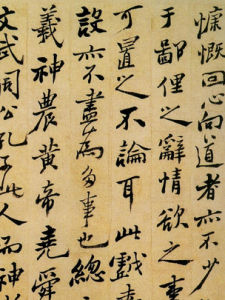 慷慨回心向道者亦不少
于鄙俚之辭情欲之事
可置之不論耳此戲
設亦不盡為多事也總
義神農黃帝堯舜
文武周公孔子此人而神